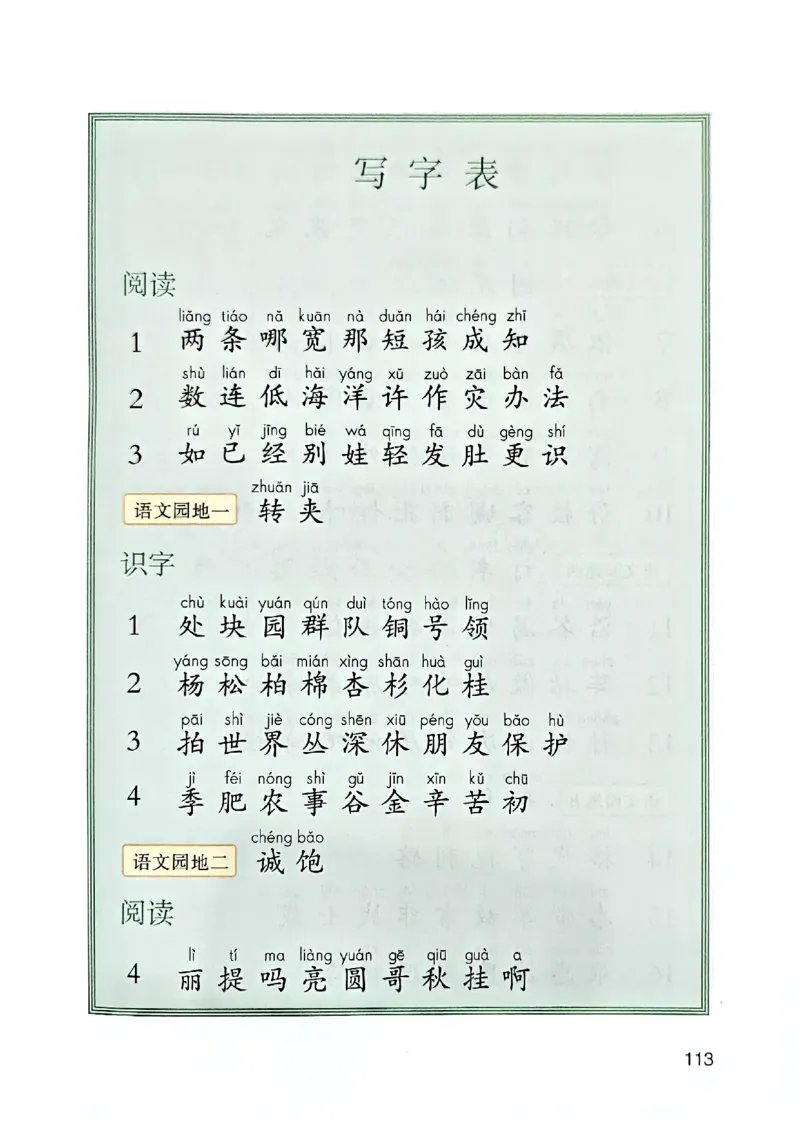 写字表
阅读
liǎng tiáo nǎ kuān nà duǎn hái chéng zhī
1 两条哪宽那短孩成知
shù lián dī hǎi yáng xǔ zuò zāi bàn fǎ
2 数连低海洋许作灾办法
rú yǐ jīng bié wá qīng fā dù gèng shí
3 如已经别娃轻发肚更识
zhuǎn jiā
语文园地一 转夹
识字
chù kuài yuán qún duì tóng hào lǐng
1 处块园群队铜号领
yáng sōng bǎi mián xìng shān huà guì
2 杨松柏棉杏杉化桂
pāi shì jiè cóng shēn xiū péng yǒu bǎo hù
3 拍世界丛深休朋友保护
jì féi nóng shì gǔ jīn xīn kǔ chū
4 季肥农事谷金辛苦初
chéng bǎo
语文园地二 诚饱
阅读
lì tí ma liàng yuán gē qiū guà a
4 丽提吗亮圆哥秋挂啊
113